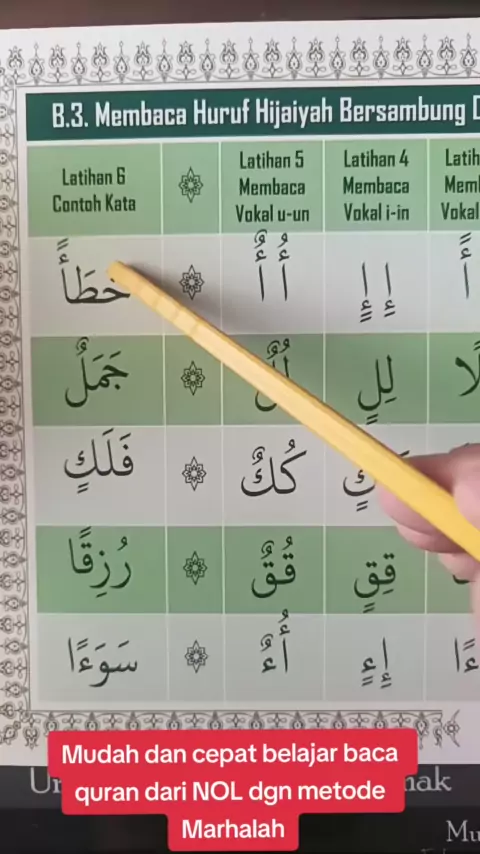 B.3. Membaca Huruf Hijaiyah Bersambung
Latihan 6
Contoh Kata
Latihan 5
Membaca
Vokal u-un
Latihan 4
Membaca
Vokal i-in
Vokal
أُ أٌ
إِ إٍ
جَمَلٌ
لِلٍ
فَلَكٍ
كُكٌ
رُزِقًا
قُقٌ
قِقٍ
سَوَءًا
أُءٌ
إِءٍ
Mudah dan cepat belajar baca
quran dari NOL dgn metode
Marhalah